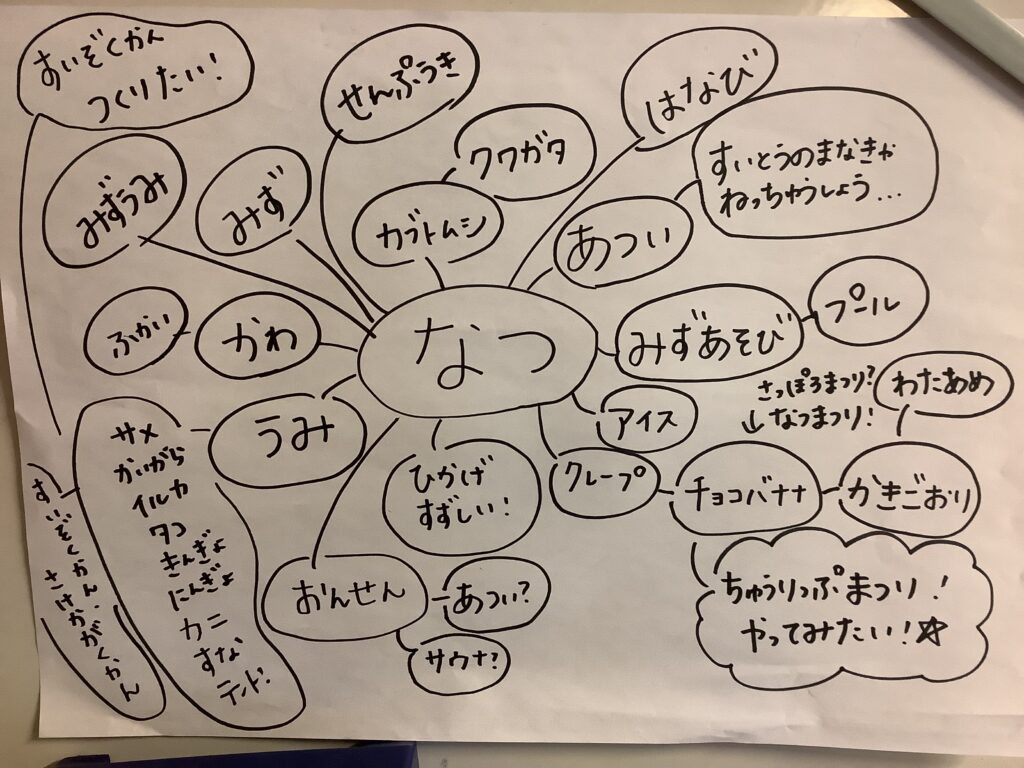 すいぞくかん
つくりたい!
せんぷうき
はなび
クワガタ
すいとうのまなきゃ
ねっちゅうしょう...
みずうみ
みず
カブトムシ
あつい
ふかい
かわ
なつ
みずあそび
プール
さっぽろまつり?
↓なつまつり!
わたあめ
アイス
うみ
サメ
かいがら
イルカ
タコ
きんぎょ
にんぎょ
カニ
すな
テント!
ひかげ
すずしい!
クレープ
チョコバナナ
かきごおり
すいぞくかん、
さけかがくかん
おんせん
あつい?
サウナ?
ちゅうりっぷまつり!
やってみたい!☆